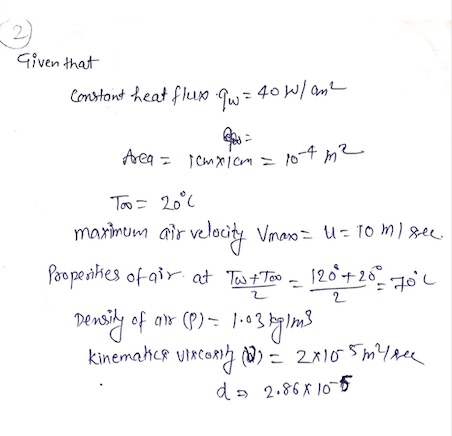 2
Given that
Constant heat flux qw = 40 W/cm²
Area = 1cmx1cm = 10-4 m²
T∞ = 20°C
maximum air velocity Vmax = U = 10 m/sec.
Properties of air at Tw+T∞/2 = 120°+20°/2 = 70°C
Density of air (ρ) = 1.03 kg/m3
kinematics viscosity (ν) = 2x10-5 m²/sec
α => 2.86 x 10-5